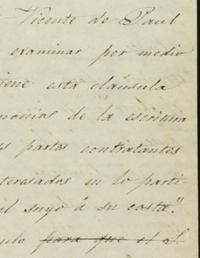 Vicente de Paul
examinar por medio
iene esta cláusula
monias de la escritura
s partes contratantes
teresados en lo parti-
al suyo á su costa".
ulo para que el al